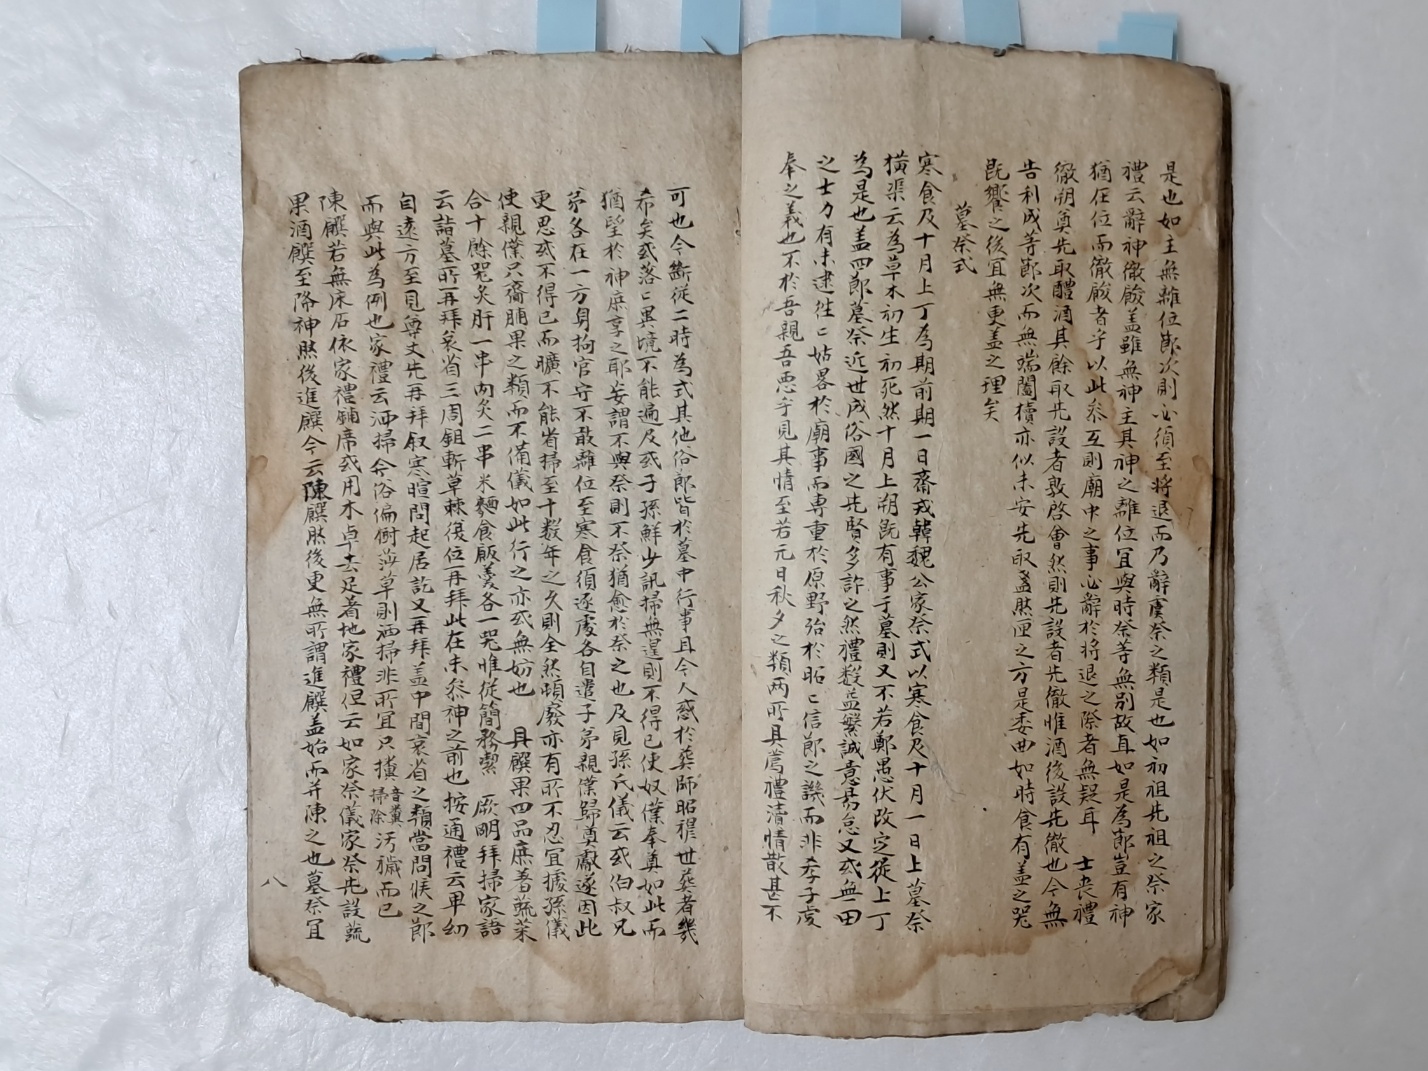 是也如主無離位節次則必須至將退而乃辭虞祭之類是也如初祖先祖之祭家
禮云辭神徹餕盖雖無神主其神之離位冝與時祭等無別故耳如是為節豈有神
猶在位而徹餕者乎以此叅互則廟中之事必辭於將退之際者無疑耳 士喪禮
徹朔奠先取醴酒其餘取先設者敦啓會然則先設者先徹惟酒後設先徹也今無
告利成等節次而無端闔牘亦似未安先取盞盤匜之方是委曲如時食有盖之器
既饗之後冝無更盖之理矣
墓祭式
寒食及十月上丁為期前期一日齋戒韓魏公家祭式以寒食及十月一日上墓祭
橫渠云為草木初生初死然十月上朔旣有事于墓則又不若鄭愚伏改定從上丁
為是也盖四節墓祭近世成俗國之先賢多許之然禮數益繁誠意易怠又或無田
之士力有未逮徃〻姑畧於廟事而専重於原野殆於昭〻信節之譏而非孝子虔
奉之義也不於吾親吾惡乎見其情至若元日秋夕之類兩所具薦禮瀆情散甚不
可也今斷從二時為式其他俗節皆於墓中行事且今人惑於葬師昭穆世葬者幾
希矣或落〻異境不能遍及或子孫鮮少訊掃無遑則不得已使奴僕奉奠如此而
猶望於神庶享之耶妄謂不與祭則不祭猶愈於祭之也及見孫氏儀云或伯叔兄
苐各在一方身拘官守不敢離位至寒食須逐處各自遣子苐親僕歸奠獻遂因此
更思或不得已而曠不能省掃至十数年之久則全然頓廢亦有所不忍冝據孫儀
使親僕只齋脯果之類而不備儀如此行之亦或無妨也 具饌果四品庶羞蔬菜
合十餘器炙肝一串肉炙二串米麵食飯羹各一器惟從簡務潔 厥明拜掃家語
云詣墓所再拜哀省三周鉏斬草棘復位再拜此在未叅神之前也按通禮云卑幼
自遠方至見尊丈先再拜叙寒暄問起居訖又再拜盖中間哀省之類當問候之節
而與此為例也家禮云洒掃今俗偏尌莎草則洒掃非所宜只㩲音糞掃除汚穢而已
陳饌若無床石依家禮鋪席或用木卓去足着地家禮但云如家祭儀家祭先設蔬
果酒饌至降神然後進饌今云陳饌然後更無所謂進饌盖始而并陳之也墓祭冝
八